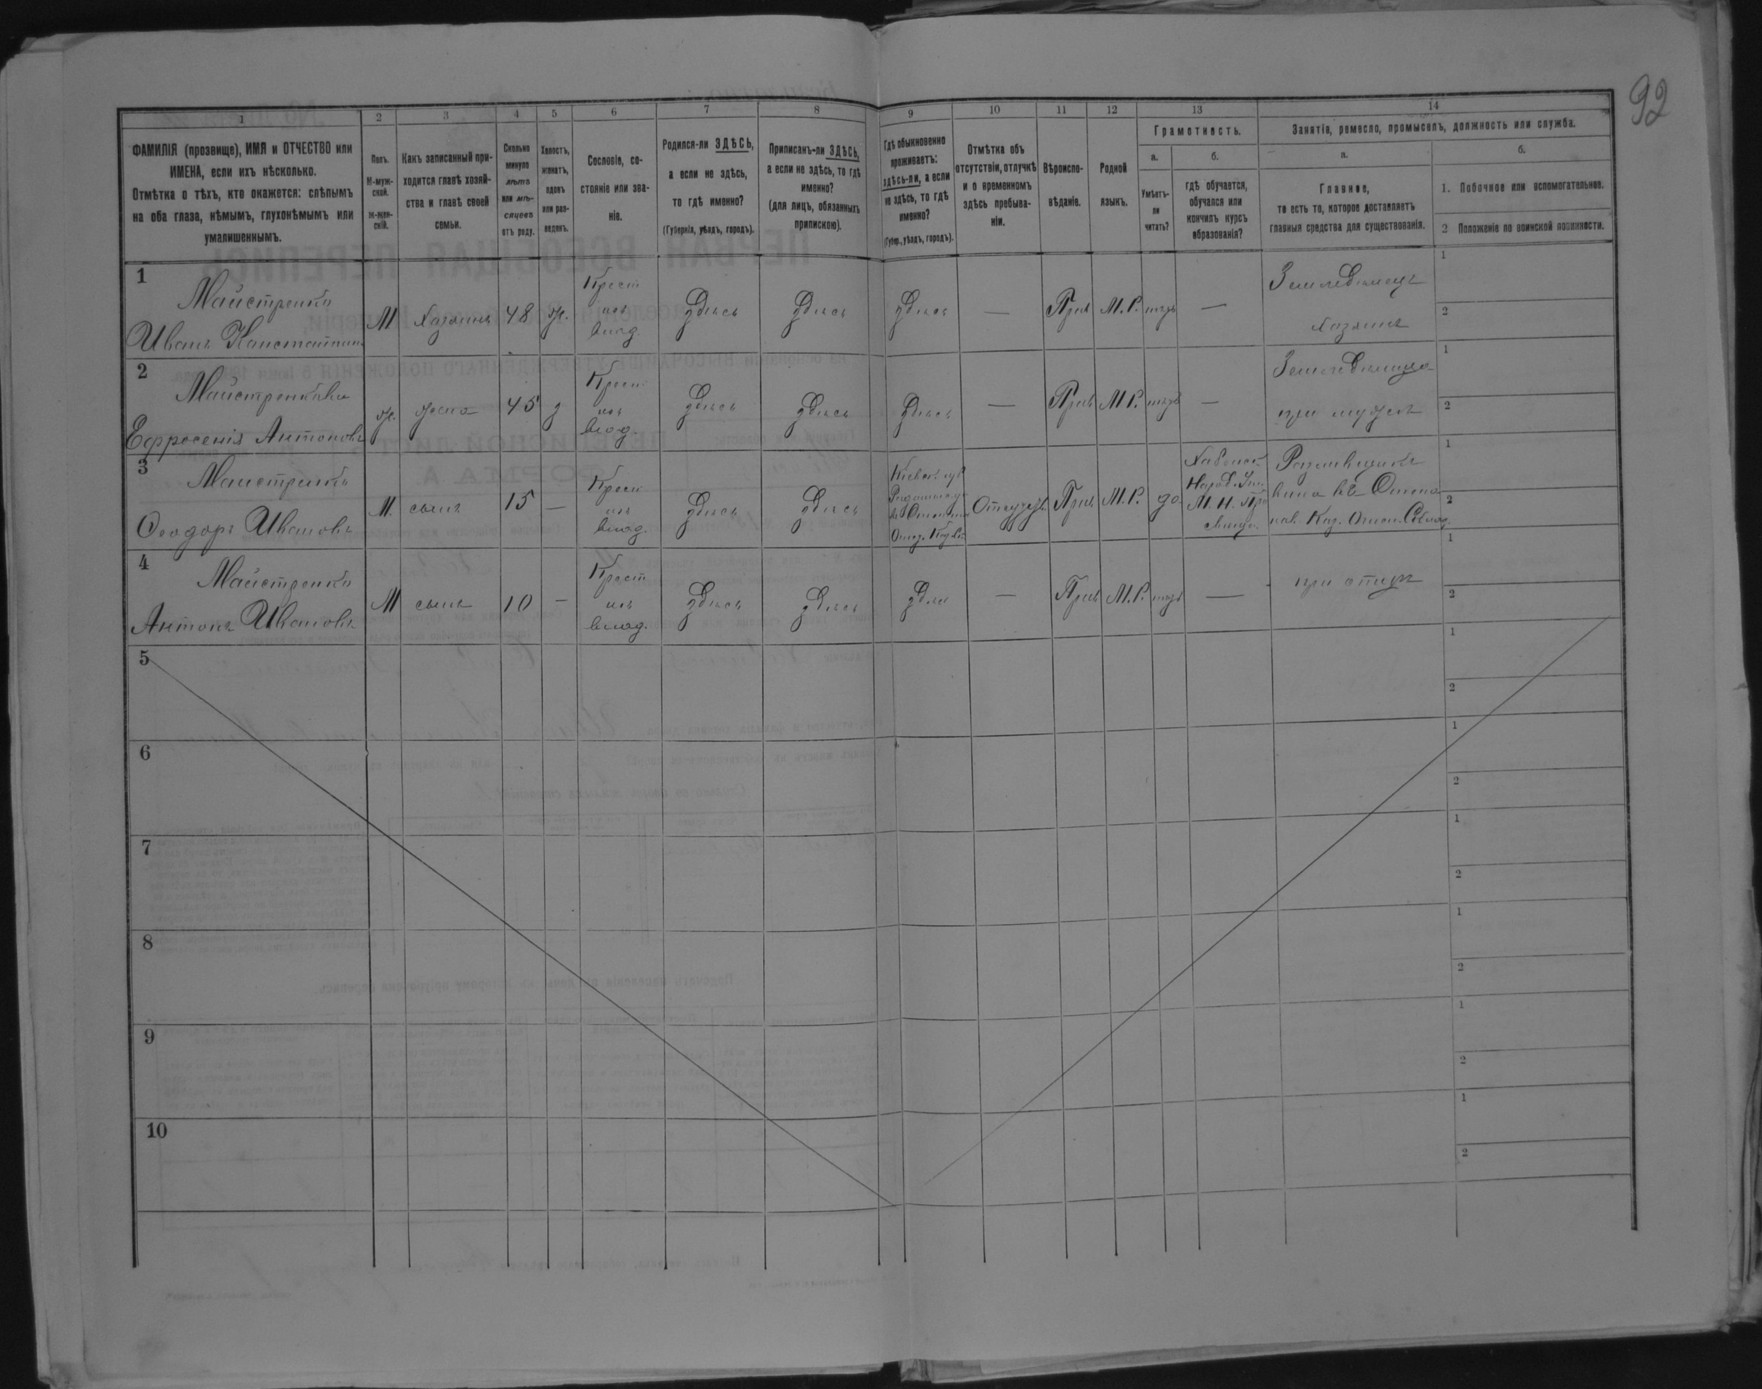 92
1 2 3 4 5 6 7 8 9 10 11 12 13 14
ФАМИЛІЯ (прозвище), ИМЯ и ОТЧЕСТВО или
ИМЕНА, если ихъ нѣсколько.
Отмѣтка о тѣхъ, кто окажется: слѣпымъ
на оба глаза, нѣмымъ, глухонѣмымъ или
умалишеннымъ.
Полъ.
М-муж-
ской.
Ж-жен-
скій.
Какъ записанный при-
ходится главѣ хозяй-
ства и главѣ своей
семьи.
Сколько
минуло
лѣтъ
или мѣ-
сяцевъ
отъ роду.
Холостъ,
женатъ,
вдовъ
или раз-
веденъ.
Сословіе, со-
стояніе или зва-
ніе.
Родился-ли ЗДѢСЬ,
а если не здѣсь,
то гдѣ именно?
(Губернія, уѣздъ, городъ).
Приписанъ-ли ЗДѢСЬ,
а если не здѣсь, то гдѣ
именно?
(для лицъ, обязанныхъ
припискою).
Гдѣ обыкновенно
проживаетъ:
здѣсь-ли, а если
не здѣсь, то гдѣ
именно?
(Губер., уѣздъ, городъ).
Отмѣтка объ
отсутствіи, отлучкѣ
и о временномъ
здѣсь пребыва-
ніи.
Вѣроиспо-
вѣданіе.
Родной
языкъ.
Грамотность.
а.
Умѣетъ-
ли
читать?
б.
гдѣ обучается,
обучался или
кончилъ курсъ
образованія?
Занятія, ремесло, промыселъ, должность или служба.
а.
Главное,
то есть то, которое доставляетъ
главныя средства для существованія.
б.
1. Побочное или вспомогательное.
2 Положеніе по воинской повинности.
1
Майстренко
Иванъ Константин
М Хозяинъ 48 ж.
Крест
изъ
влад.
здѣсь здѣсь здѣсь — Прав М.Р. нѣтъ —
Земледѣлецъ
хозяинъ
1
2
2
Майстренкова
Ефросенія Антонов
ж. жена 45 з
Крест
изъ
влад.
здѣсь здѣсь здѣсь — Прав М.Р. нѣтъ —
Земледѣлица
при мужѣ
1
2
3
Майстренко
Ѳеодоръ Ивановъ
М. сынъ 15 —
Крест
изъ
влад.
здѣсь здѣсь
Кіевск губ
Отлуч Прав М.Р. да
Народ. Уч
М. Н. Про
вина въ
1
2
4
Майстренко
Антонъ Ивановъ
М сынъ 10 —
Крест
изъ
влад.
здѣсь здѣсь здѣсь — Прав М.Р. нѣтъ —
при отцѣ
1
2
5
1
2
6
1
2
7
1
2
8
1
2
9
1
2
10
1
2